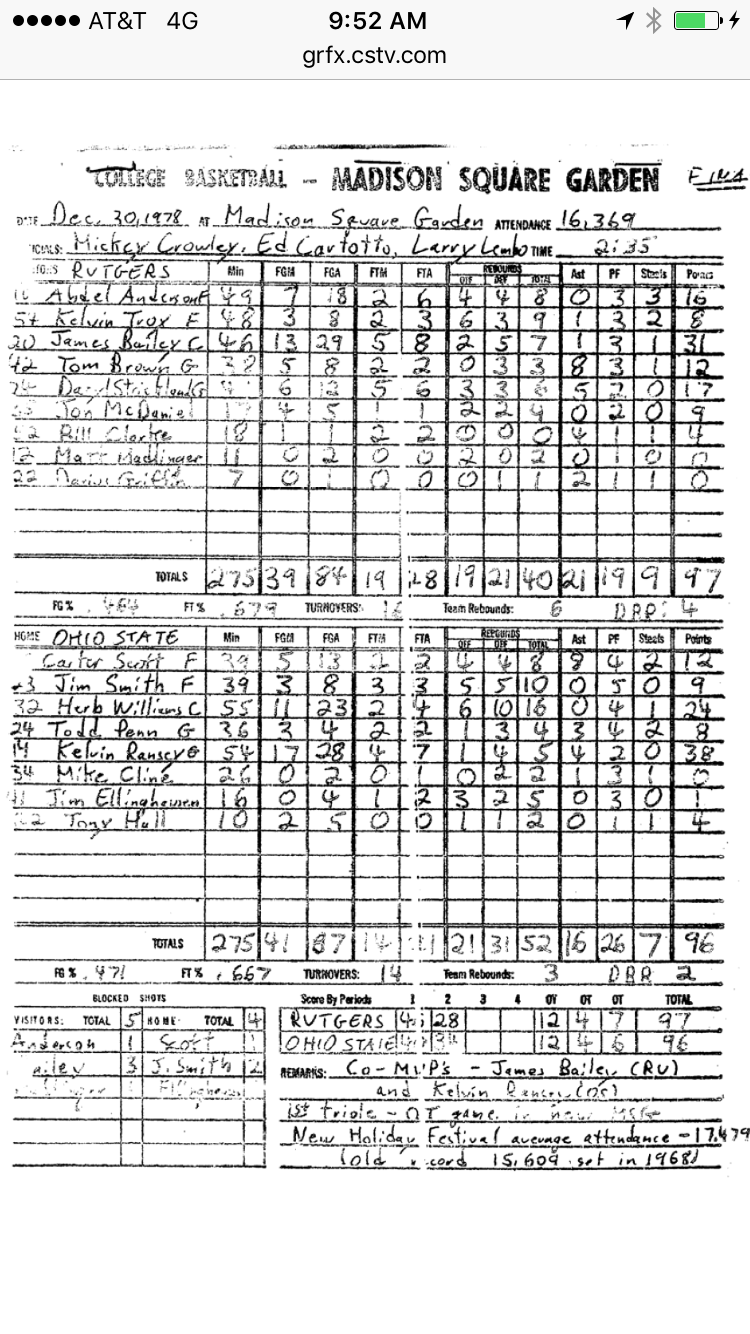 AT&T 4G 9:52 AM
grfx.cstv.com
COLLEGE BASKETBALL - MADISON SQUARE GARDEN
DATE Dec. 30, 1978 AT Madison Square Garden ATTENDANCE 16,369
Mickey Crowley, Ed Cartotto, Larry Lembo TIME 2:35
RUTGERS Min FGM FGA FTM FTA REBOUNDS OFF DEF TOTAL Ast PF Steels Points
Abdel Anderson F 49 7 18 2 6 4 4 8 0 3 3 16
54 Kelvin Troy F 48 3 8 2 3 6 3 9 1 3 2 8
20 James Bailey C 46 13 29 5 8 2 5 7 1 3 1 31
42 Tom Brown G 38 5 8 2 2 0 3 3 8 3 1 12
Daryl Strickland G 6 12 5 6 3 3 6 5 2 0 17
Jon McDaniel 4 5 1 1 2 2 4 0 2 0 9
52 Bill Clarke 18 1 1 2 2 0 0 0 4 1 1 4
12 Matt Madlinger 11 0 2 0 0 2 0 2 0 1 0 0
22 Darius Griffin 7 0 1 0 0 0 1 1 2 1 1 0
TOTALS 275 39 84 19 28 19 21 40 21 19 9 97
FG % .464 FT % .679 TURNOVERS: 16 Team Rebounds: 6 DRR: 4
HOME OHIO STATE Min FGM FGA FTM FTA REBOUNDS OFF DEF TOTAL Ast PF Steels Points
Carter Scott F 39 5 13 2 2 4 4 8 8 4 2 12
Jim Smith F 39 3 8 3 3 5 5 10 0 5 0 9
32 Herb Williams C 55 11 23 2 4 6 10 16 0 4 1 24
24 Todd Penn G 36 3 4 2 2 1 3 4 3 4 2 8
14 Kelvin Ransey G 54 17 28 4 7 1 4 5 4 2 0 38
34 Mike Cline 26 0 2 0 1 0 2 2 1 3 1 0
41 Jim Ellinghausen 16 0 4 1 2 3 2 5 0 3 0 1
22 Tony Hall 10 2 5 0 0 1 1 2 0 1 1 4
TOTALS 275 41 87 14 21 21 31 52 16 26 7 96
FG % .471 FT % .667 TURNOVERS: 14 Team Rebounds: 3 DRR 2
BLOCKED SHOTS Score By Periods 1 2 3 4 OT OT OT TOTAL
VISITORS: TOTAL 5 HOME: TOTAL 4 RUTGERS 28 12 4 7 97
Anderson 1 Scott 1 OHIO STATE 34 12 4 6 96
3 J. Smith 2 REMARKS: Co-MVP's - James Bailey (RU)
1 Ellinghausen and Kelvin Ransey (OS)
1st triple - OT game in new MSG
New Holiday Festival average attendance - 17,479
(old record 15,609 set in 1968)